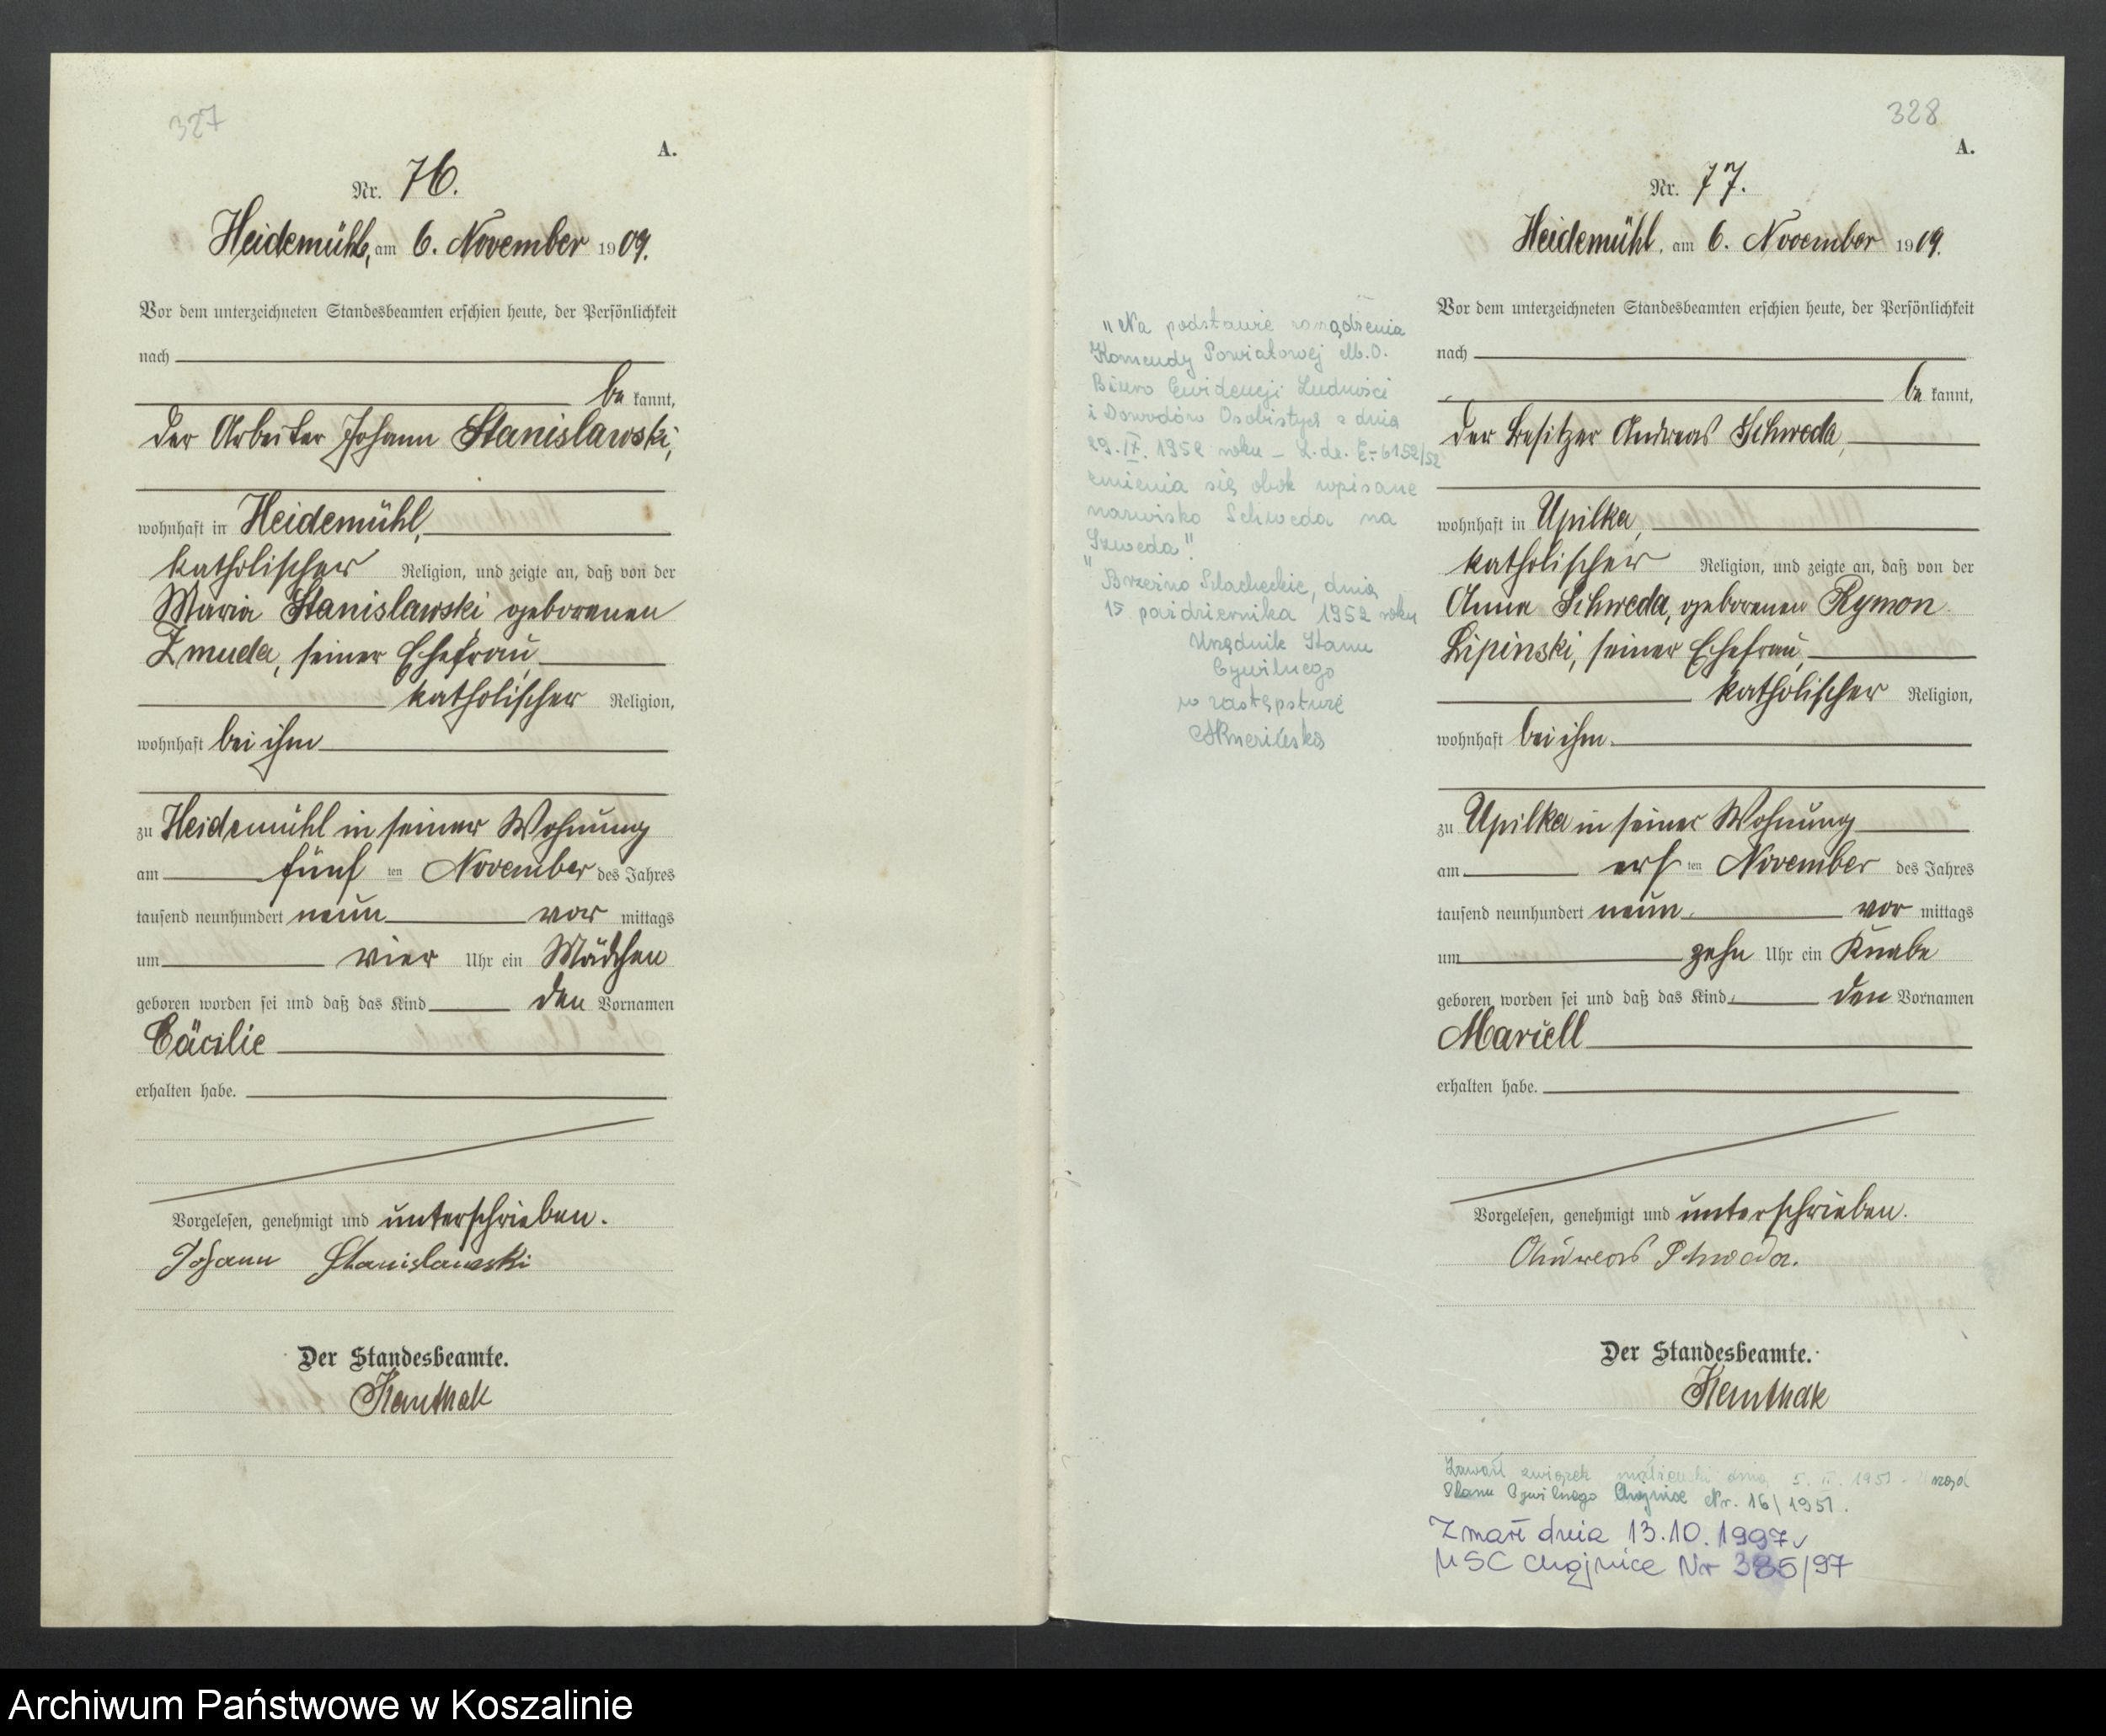 327
A.
Nr. 76.
Heidemühl, am 6. November 1909.
Vor dem unterzeichneten Standesbeamten erschien heute, der Persönlichkeit
nach
be kannt,
der Arbeiter Johann Stanislawski,
wohnhaft in Heidemühl,
katholischer Religion, und zeigte an, daß von der
Maria Stanislawski geborenen
Zmuda, seiner Ehefrau,
katholischer Religion,
wohnhaft bei ihm
zu Heidemühl in seiner Wohnung
am fünf ten November des Jahres
tausend neunhundert neun vor mittags
um vier Uhr ein Mädchen
geboren worden sei und daß das Kind den Vornamen
Cäcilie
erhalten habe.
Vorgelesen, genehmigt und unterschrieben.
Johann Stanislawski
Der Standesbeamte.
328
A.
Nr. 77.
Heidemühl, am 6. November 1909.
Vor dem unterzeichneten Standesbeamten erschien heute, der Persönlichkeit
nach
be kannt,
der Besitzer Andreas Schweda,
wohnhaft in Upilka,
katholischer Religion, und zeigte an, daß von der
Anna Schweda, geborenen Rymon
Lipinski, seiner Ehefrau,
katholischer Religion,
wohnhaft bei ihm
zu Upilka in seiner Wohnung
am erst ten November des Jahres
tausend neunhundert neun vor mittags
um zehn Uhr ein Knabe
geboren worden sei und daß das Kind den Vornamen
Marcell
erhalten habe.
Vorgelesen, genehmigt und unterschrieben.
Andreas Schweda.
Der Standesbeamte.
"Na podstawie zarządzenia
Komendy Powiatowej M.O.
Biuro Ewidencji Ludności
i Dowodów Osobistych z dnia
29. IX. 1952 roku – L.dz. E-6152/52
zmienia się obok wpisane
nazwisko Schweda na
Szweda".
"Brzeźno Szlacheckie, dnia
15 października 1952 roku
Urzędnik Stanu
Cywilnego
w zastępstwie
Zawarł związek małżeński dnia 5. II. 1951 - Urząd
Stanu Cywilnego Chojnice Nr. 16/1951.
Zmarł dnia 13.10.1997
USC Chojnice Nr 385/97
Archiwum Państwowe w Koszalinie